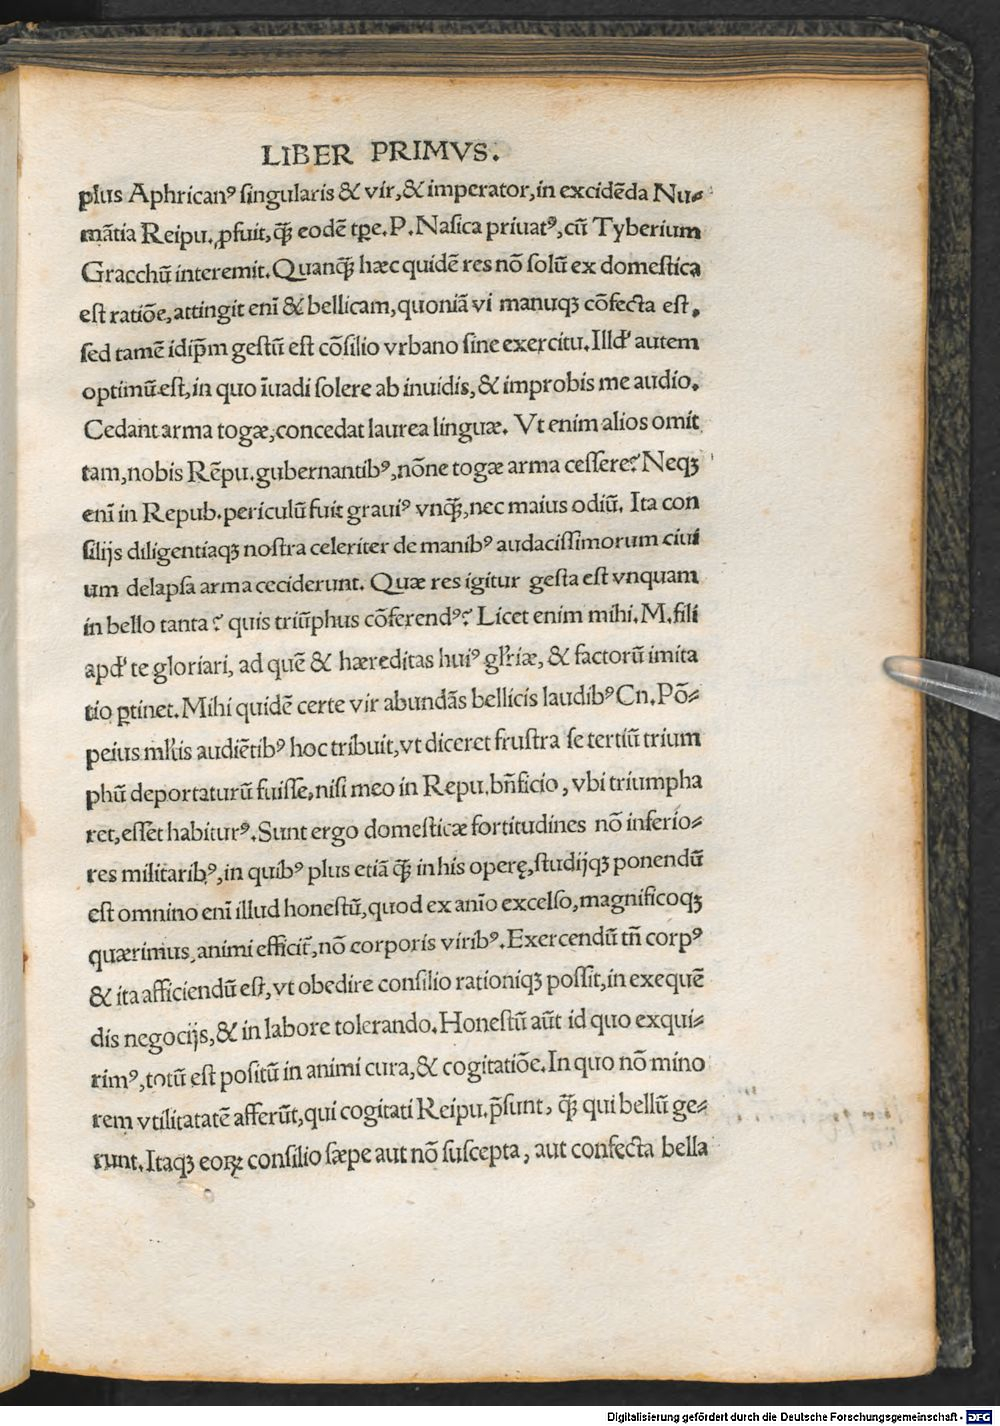 LIBER PRIMVS.
plus Aphricanꝰ ſingularis & vir, & imperator, in excidēda Nu⸗
mātia Reipu. ꝓfuit, q̄ȝ eodē tꝑe. P. Naſica priuatꝰ, cū Tyberium
Gracchū interemit. Quanq̄ȝ hæc quidē res nō ſolū ex domeſtica
eſt ratiōe, attingit enī & bellicam, quoniā vi manuqȝ cōfecta eſt,
ſed tamē idip̄m geſtū eſt cōſilio vrbano ſine exercitu. Illd' autem
optimū eſt, in quo īuadi ſolere ab inuidis, & improbis me audio.
Cedant arma togæ, concedat laurea linguæ. Vt enim alios omit
tam, nobis Rēpu. gubernantibꝰ, nōne togæ arma ceſſere? Neqȝ
enī in Repub. periculū fuit grauiꝰ vnq̄ȝ, nec maius odiū. Ita con
ſilijs diligentiaqȝ noſtra celeriter de manibꝰ audaciſſimorum ciui
um delapſa arma ceciderunt. Quæ res igitur geſta eſt vnquam
in bello tanta? quis triūphus cōferendꝰ? Licet enim mihi. M. fili
apd' te gloriari, ad quē & hæreditas huiꝰ gl'riæ, & factorū imita
tio ꝑtinet. Mihi quidē certe vir abundās bellicis laudibꝰ Cn. Pō⸗
peius ml'tis audiētibꝰ hoc tribuit, vt diceret fruſtra ſe tertiū trium
phū deportaturū fuiſſe, niſi meo in Repu. bn̄ficio, vbi triumpha
ret, eſſet habiturꝰ. Sunt ergo domeſticæ fortitudines nō inferio⸗
res militaribꝰ, in quibꝰ plus etiā q̄ȝ in his operę, ſtudijqȝ ponendū
eſt omnino enī illud honeſtū, quod ex anīo excelſo, magnificoqȝ
quærimus, animi efficit̄, nō corporis viribꝰ. Exercendū tn̄ corpꝰ
& ita afficiendū eſt, vt obedire conſilio rationiqȝ poſſit, in exequē
dis negocijs, & in labore tolerando. Honeſtū aūt id quo exqui⸗
rimꝰ, totū eſt poſitū in animi cura, & cogitatiōe. In quo nō mino
rem vtilitatatē afferūt, qui cogitati Reipu. p̄ſunt, q̄ȝ qui bellū ge⸗
runt. Itaqȝ eoꝝ conſilio ſæpe aut nō ſuſcepta, aut confecta bella
Digitalisierung gefördert durch die Deutsche Forschungsgemeinschaft - DFG